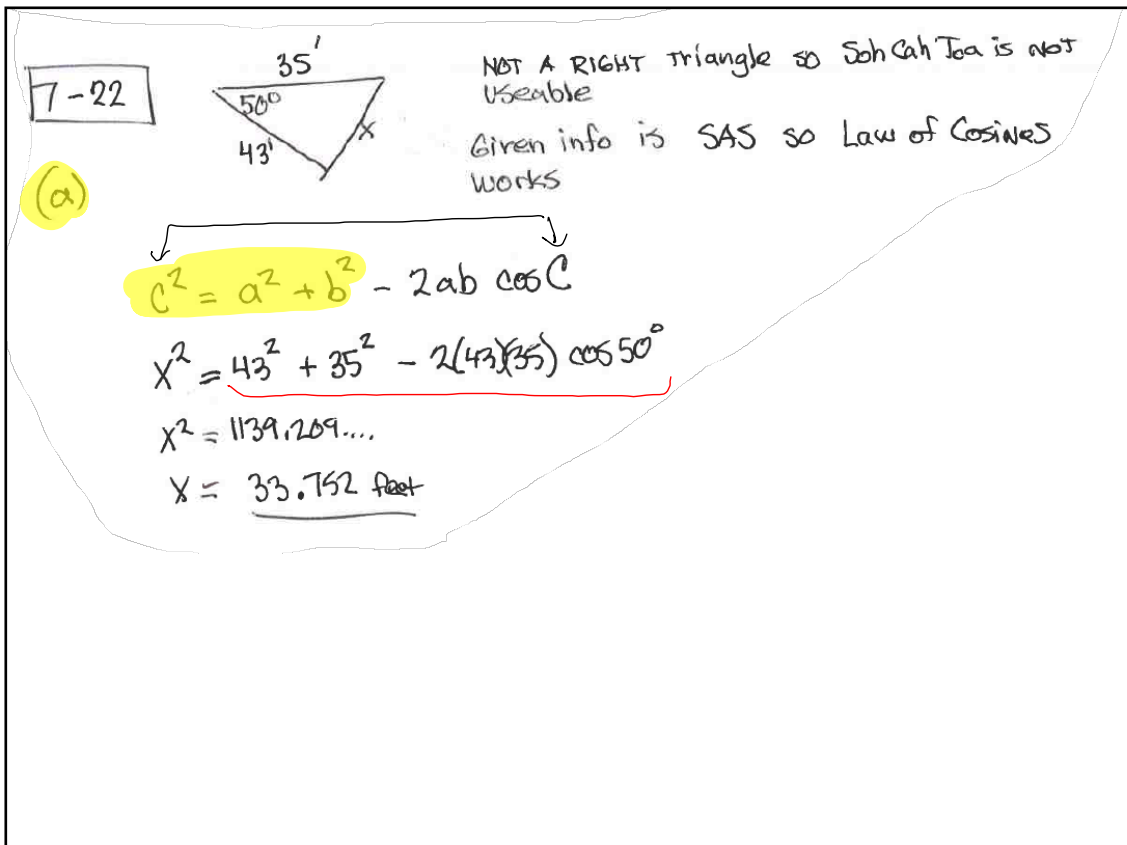 7-22
35'
50°
43'
x
NOT A RIGHT Triangle so Soh Cah Toa is NOT
Useable
Given info is SAS so Law of Cosines
works
(a)
c² = a² + b² - 2ab cos C
x² = 43² + 35² - 2(43)(35) cos 50°
x² = 1139.209....
x = 33.752 feet